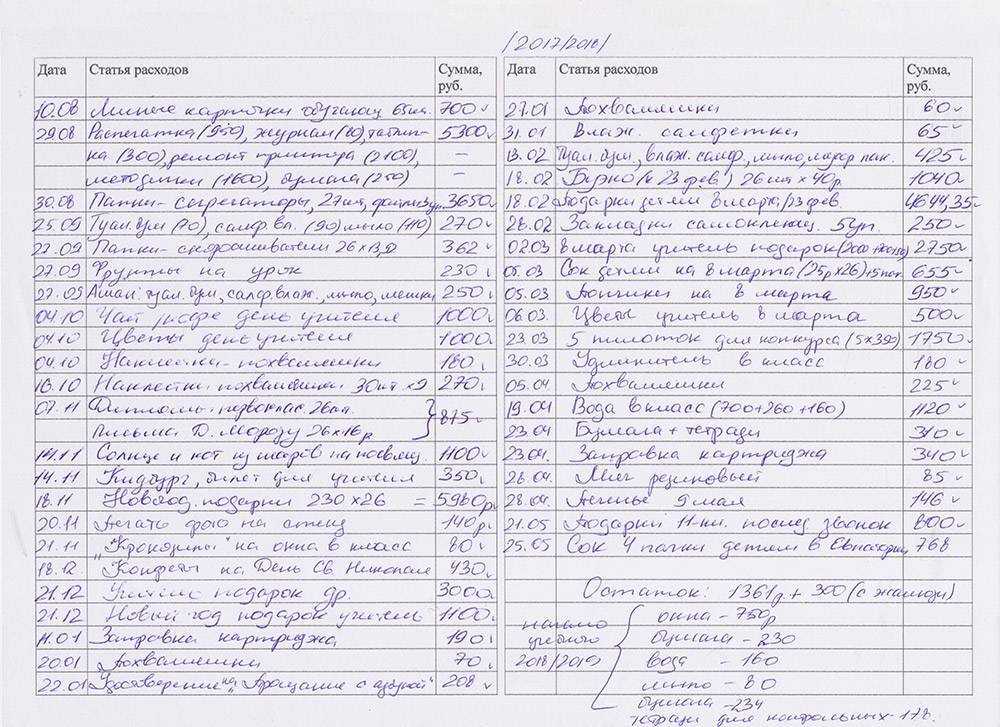 /2017/2018/
Дата Статья расходов Сумма, руб.
10.08 Личные карточки обучающ 65шт. 700
29.08 Распечатка (950), журнал (80), табли-
ка (300), ремонт принтера (2100), –
методички (1600), бумага (250) –
5300
30.08 Папки- сегрегаторы, 27шт, 3650
25.09 Туал. бум (70), салф. вл. (90) мыло (110) 270
27.09 Папки- скоросшиватели 26х13, 362
27.09 Фрукты на урок 230
27.09 туал. бум, салф. влаж., мыло, мешки 250
04.10 Чай кофе день учителя 1000
04.10 Цветы день учителя 1000
04.10 Наклейки- похвалюшки 180
16.10 Наклейки похвалюшки 30шт. х9 270
07.11 Дипломы первоклас. 26шт.
письма Д. Морозу 26х16р 875
14.11 Солнце и кот из шаров на посвящ. 1100
14.11 Кидбург, билет для учителя 350
18.11 Новогод. подарки 230х26 = 5980р
20.11 Печать фото на стенд 140р
21.11 „Крокодилы" на окна в класс 80
18.12 Конфеты на День Св. Николая 430
21.12 Учителю подарок др. 3000
21.12 Новый год подарок учителю 1100
11.01 Заправка картриджа 190
20.01 Похвалюшки 70
22.01 Удостоверение на „Прощание с азбукой" 208
Дата Статья расходов Сумма, руб.
27.01 Похвалюшки 60
31.01 Влаж. салфетки 65
13.02 Туал. бум., влаж. салф., мыло, мусор пак. 425
18.02 (к 23 фев.) 26 шт х 40р 1040
18.02 Подарки детям 8 марта/23 фев. 4644,35
28.02 Закладки самоклеющ. 5уп 250
02.03 8 марта учитель подарок (2000 2750
05.03 Сок детям на 8 марта (25р х 26) +5пак. 655
05.03 Пончики на 8 марта 950
06.03 Цветы учитель 8 марта 500
23.03 5 пилоток для конкурса (5х350) 1750
30.03 Удлинитель в класс 180
05.04 Похвалюшки 225
19.04 Вода в класс (700+260+160) 1120
23.04 Бумага + тетради 310
23.04. Заправка картриджа 340
26.04 Мяч резиновый 85
28.04 Печенье 9 мая 146
21.05 Подарки 11-кл. послед звонок 800
25.05 Сок 4 пачки детям в Евпаторию 768
Остаток: 1361р. + 300 (с жалюзи)
начало учебного 2018/2019
окна – 750р
бумага – 230
вода – 160
мыло – 80
бумага – 234
тетради для контрольных – 178.